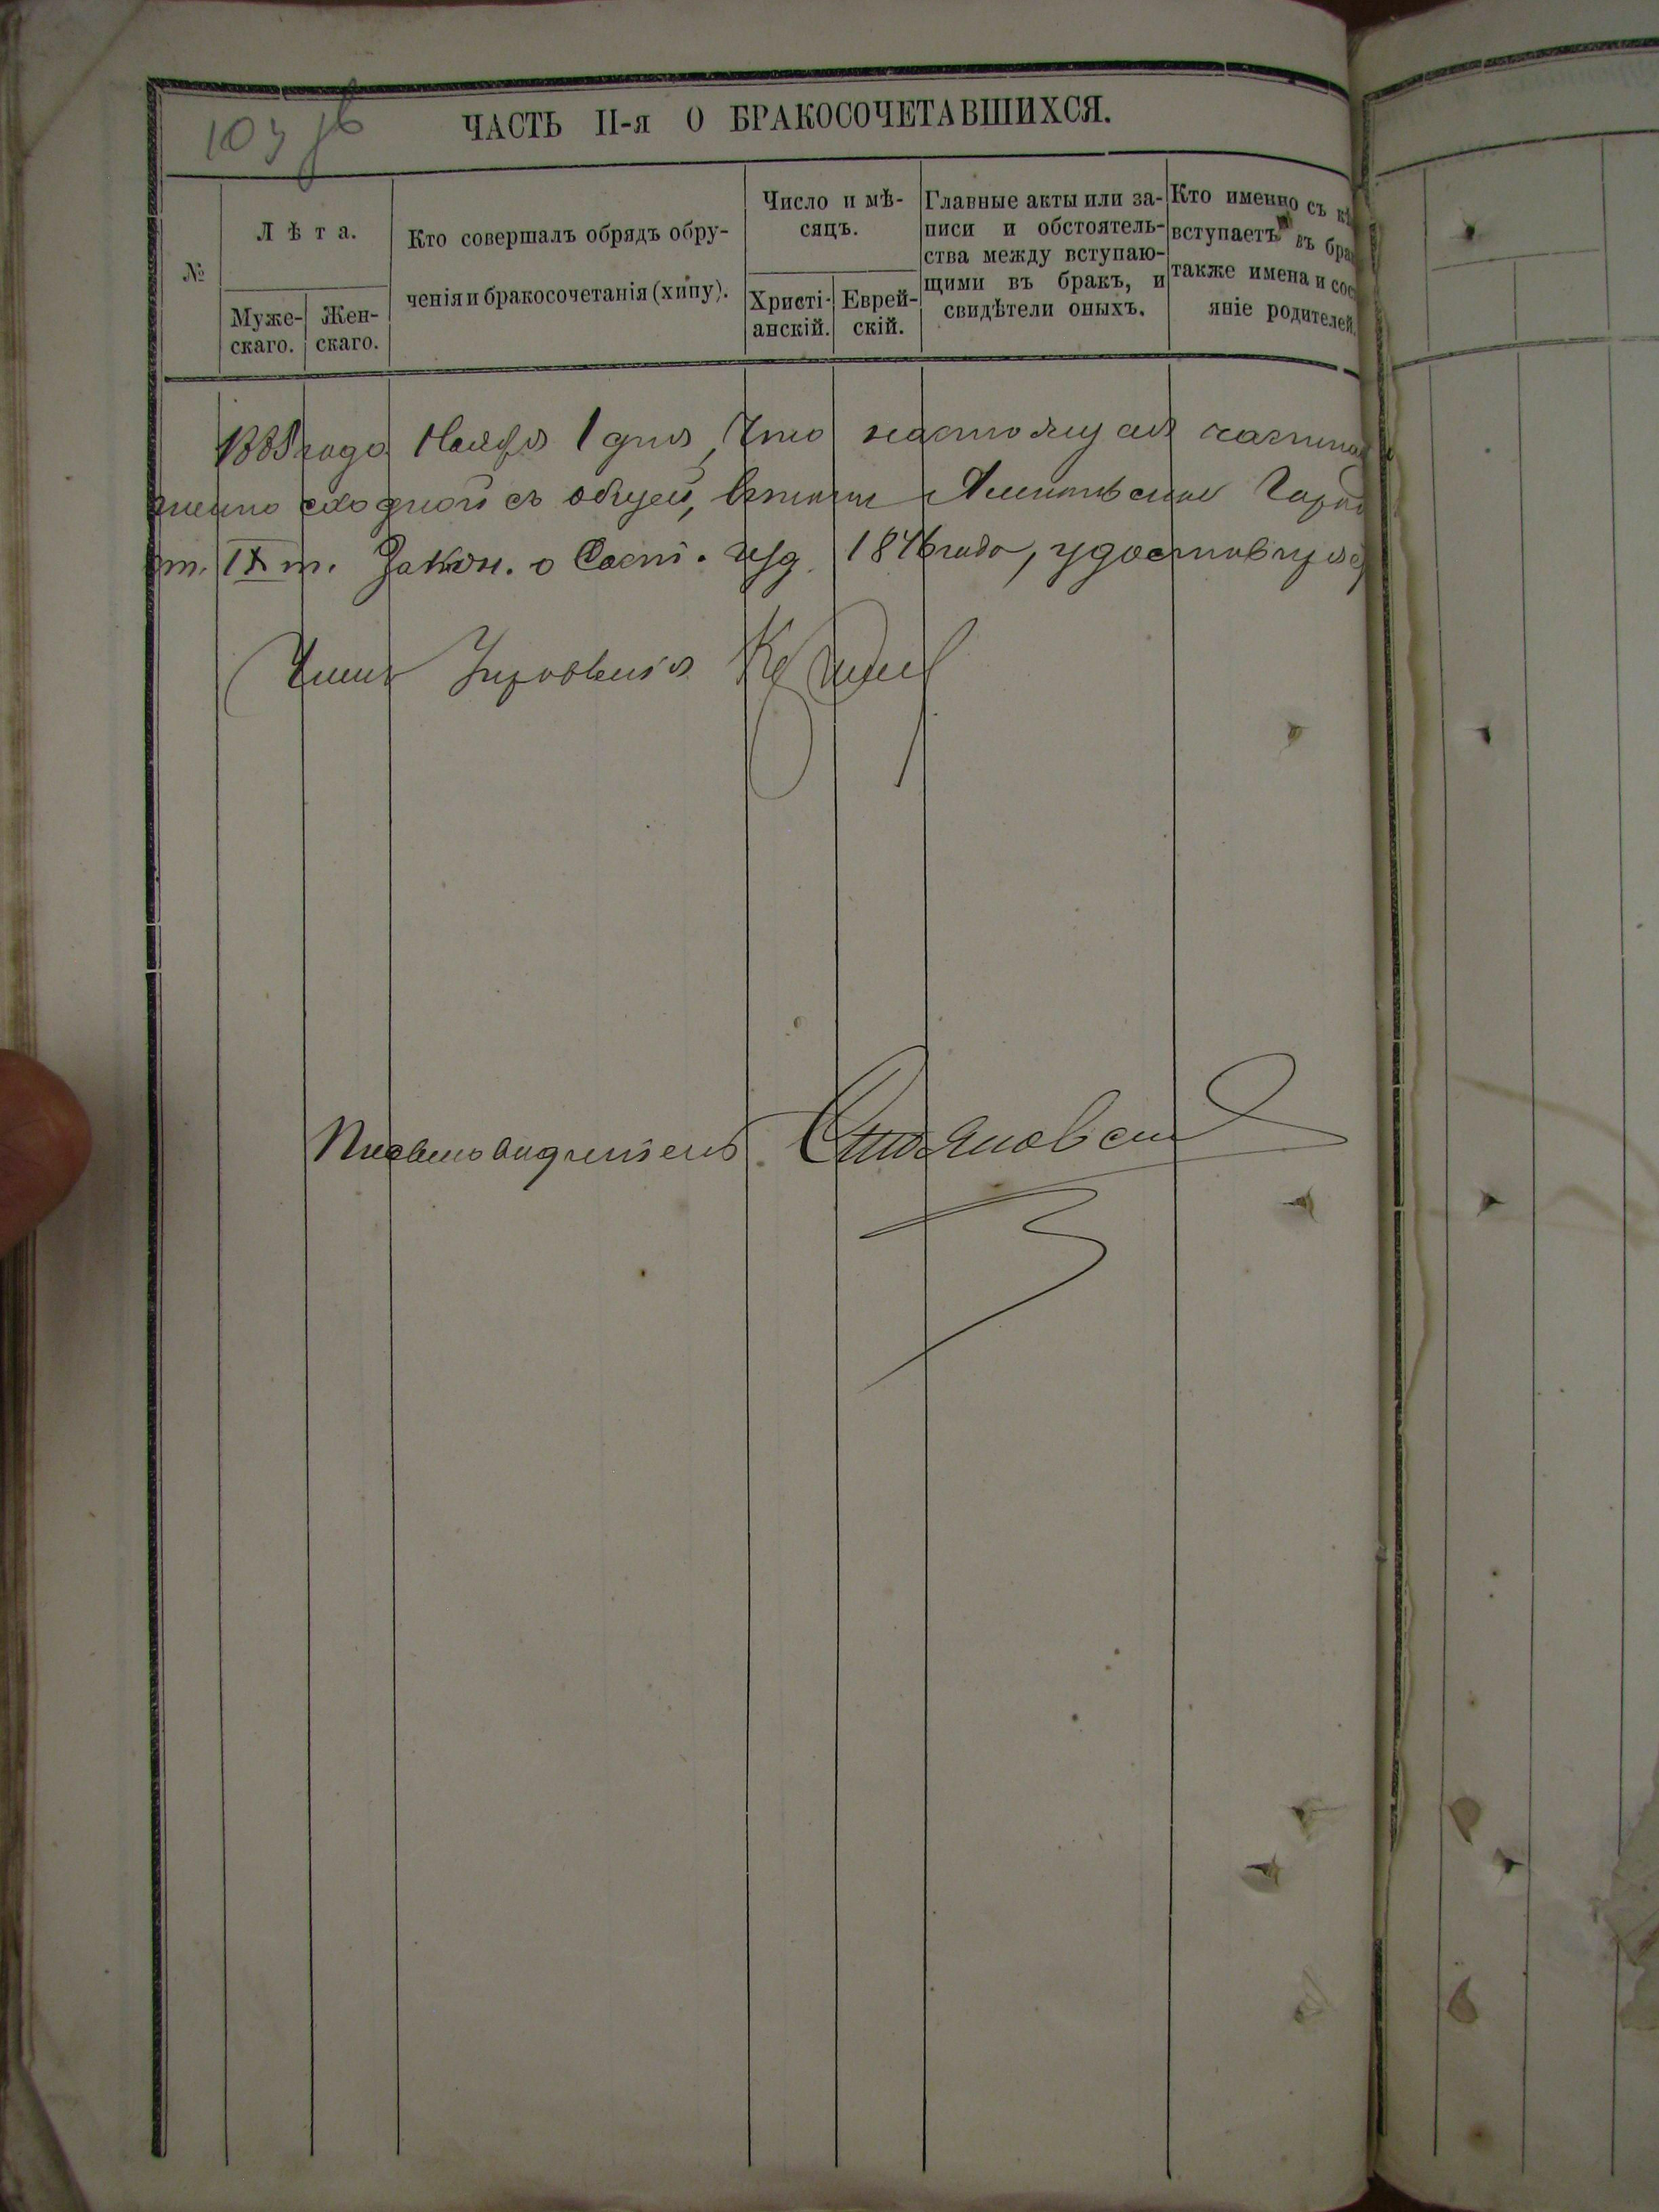 103 об
ЧАСТЬ II-я О БРАКОСОЧЕТАВШИХСЯ.
№
Лѣта.
Муже-
скаго.
Жен-
скаго.
Кто совершалъ обрядъ обру-
ченія и бракосочетанія (хипу).
Число и мѣ-
сяцъ.
Христі-
анскій.
Еврей-
скій.
Главные акты или за-
писи и обстоятель-
ства между вступаю-
щими въ бракъ, и
свидѣтели оныхъ.
Кто именно съ кѣ
вступаетъ въ бра
также имена и сос
яніе родителей.
года Ноября 1 дня, Что настоящая
сходной съ общей,
т. IX т. Закон. о Сост. изд. 1876 года, удостовѣряе
Членъ Управленія
Письмоводитель Стояновскій